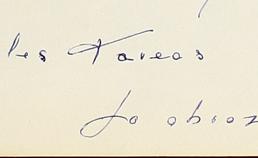 les Tareas
Lo abraz